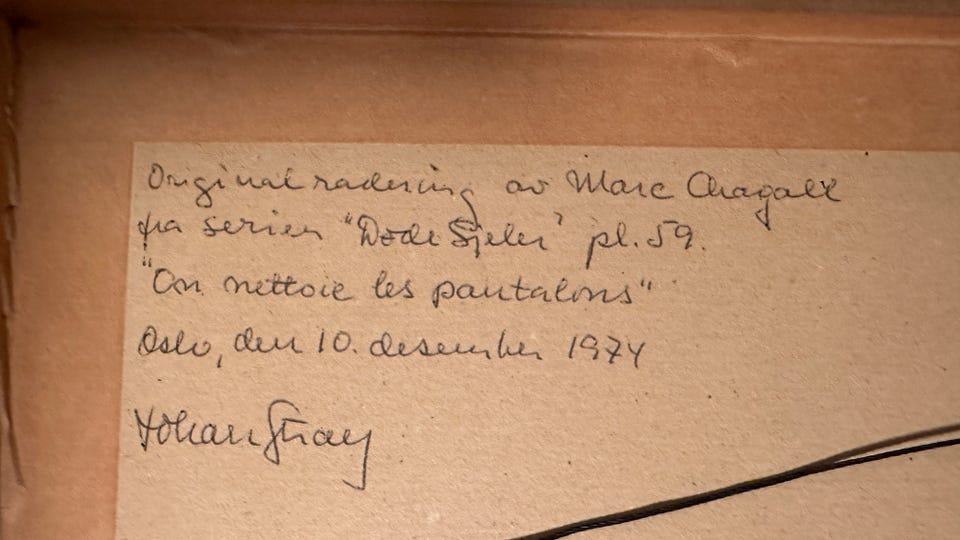 Original radering av Marc Chagall
fra serien "Døde Sjeler" pl. 59.
"On nettoie les pantalons"
Oslo, den 10. desember 1974
Johan Stray